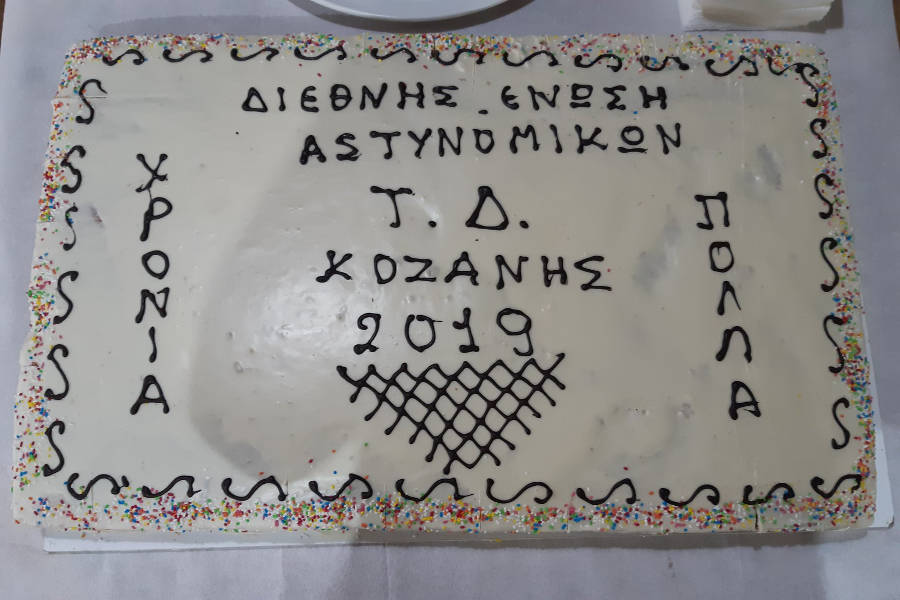 ΔΙΕΘΝΗΣ ΕΝΩΣΗ
ΑSΤΥΝΟΜΙΚΩΝ
Τ. Δ.
ΚΟΖΑΝΗΣ
2019
ΧΡΟΝΙΑ
ΠΟΛΛΑ